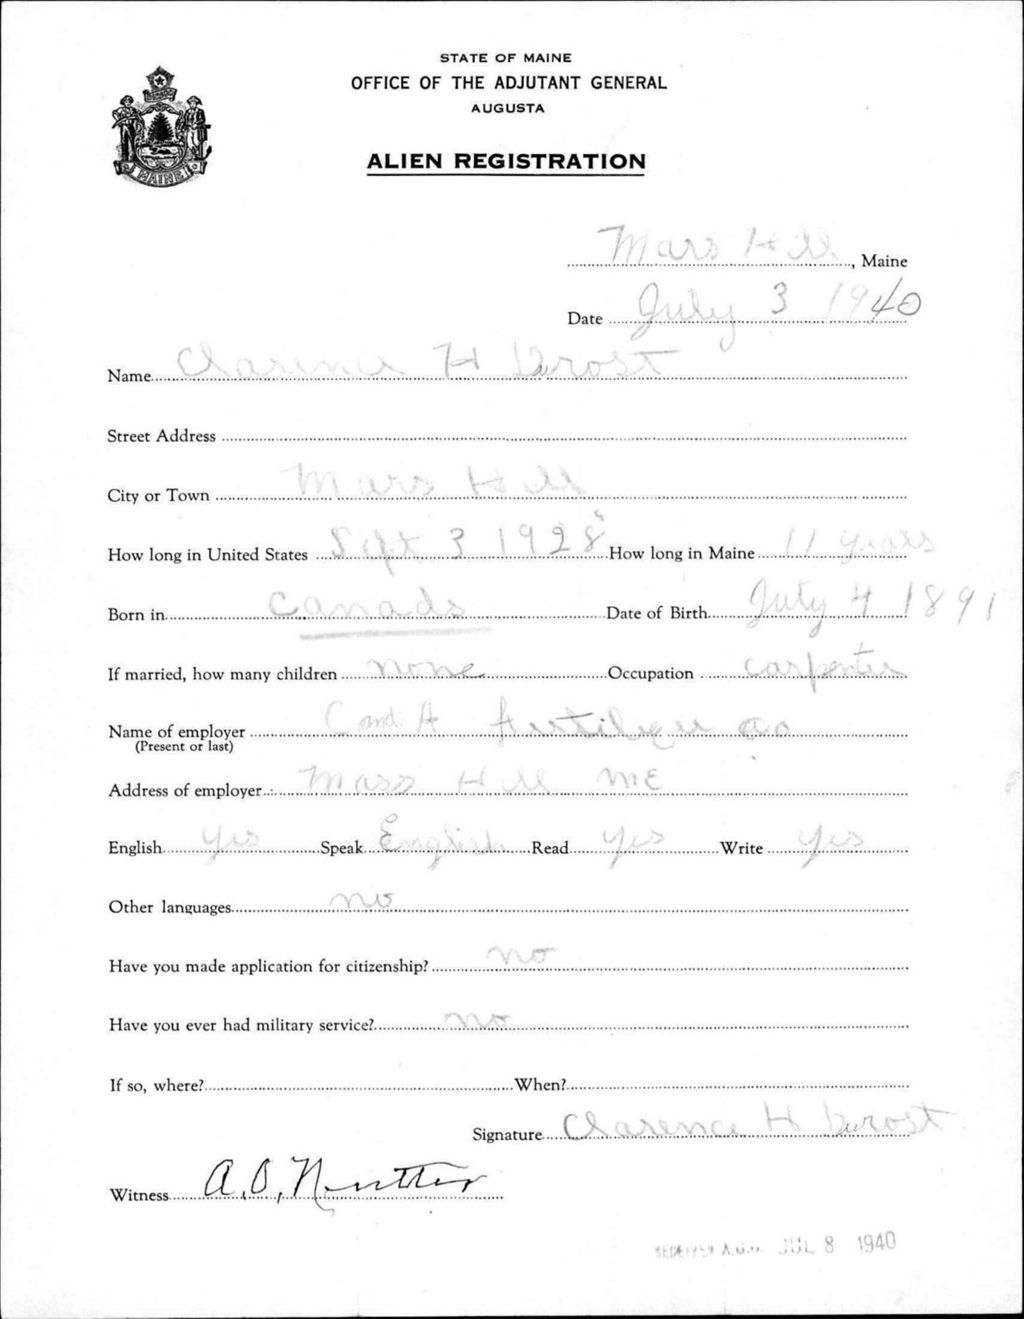 STATE OF MAINE
OFFICE OF THE ADJUTANT GENERAL
AUGUSTA
ALIEN REGISTRATION
MAINE
Mars Hill, Maine
Date July 3 1940
Name Clarence H Durost
Street Address
City or Town Mars Hill
How long in United States Sept 3 1928 How long in Maine 11 years
Born in Canada Date of Birth July 4 1891
If married, how many children none Occupation carpenter
Name of employer C and H Fertilizer co
(Present or last)
Address of employer Mars Hill ME
English yes Speak English Read yes Write yes
Other languages no
Have you made application for citizenship? no
Have you ever had military service? no
If so, where? When?
Signature Clarence H Durost
Witness A. O. Nutter
RECEIVED A.G.O. JUL 8 1940